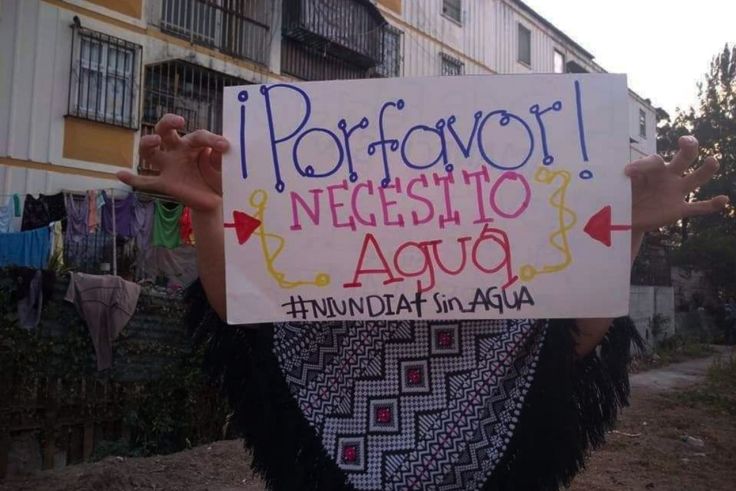 ¡Por favor!
NECESITO
Aguá
#NIUNDIA+ sin_AGUA